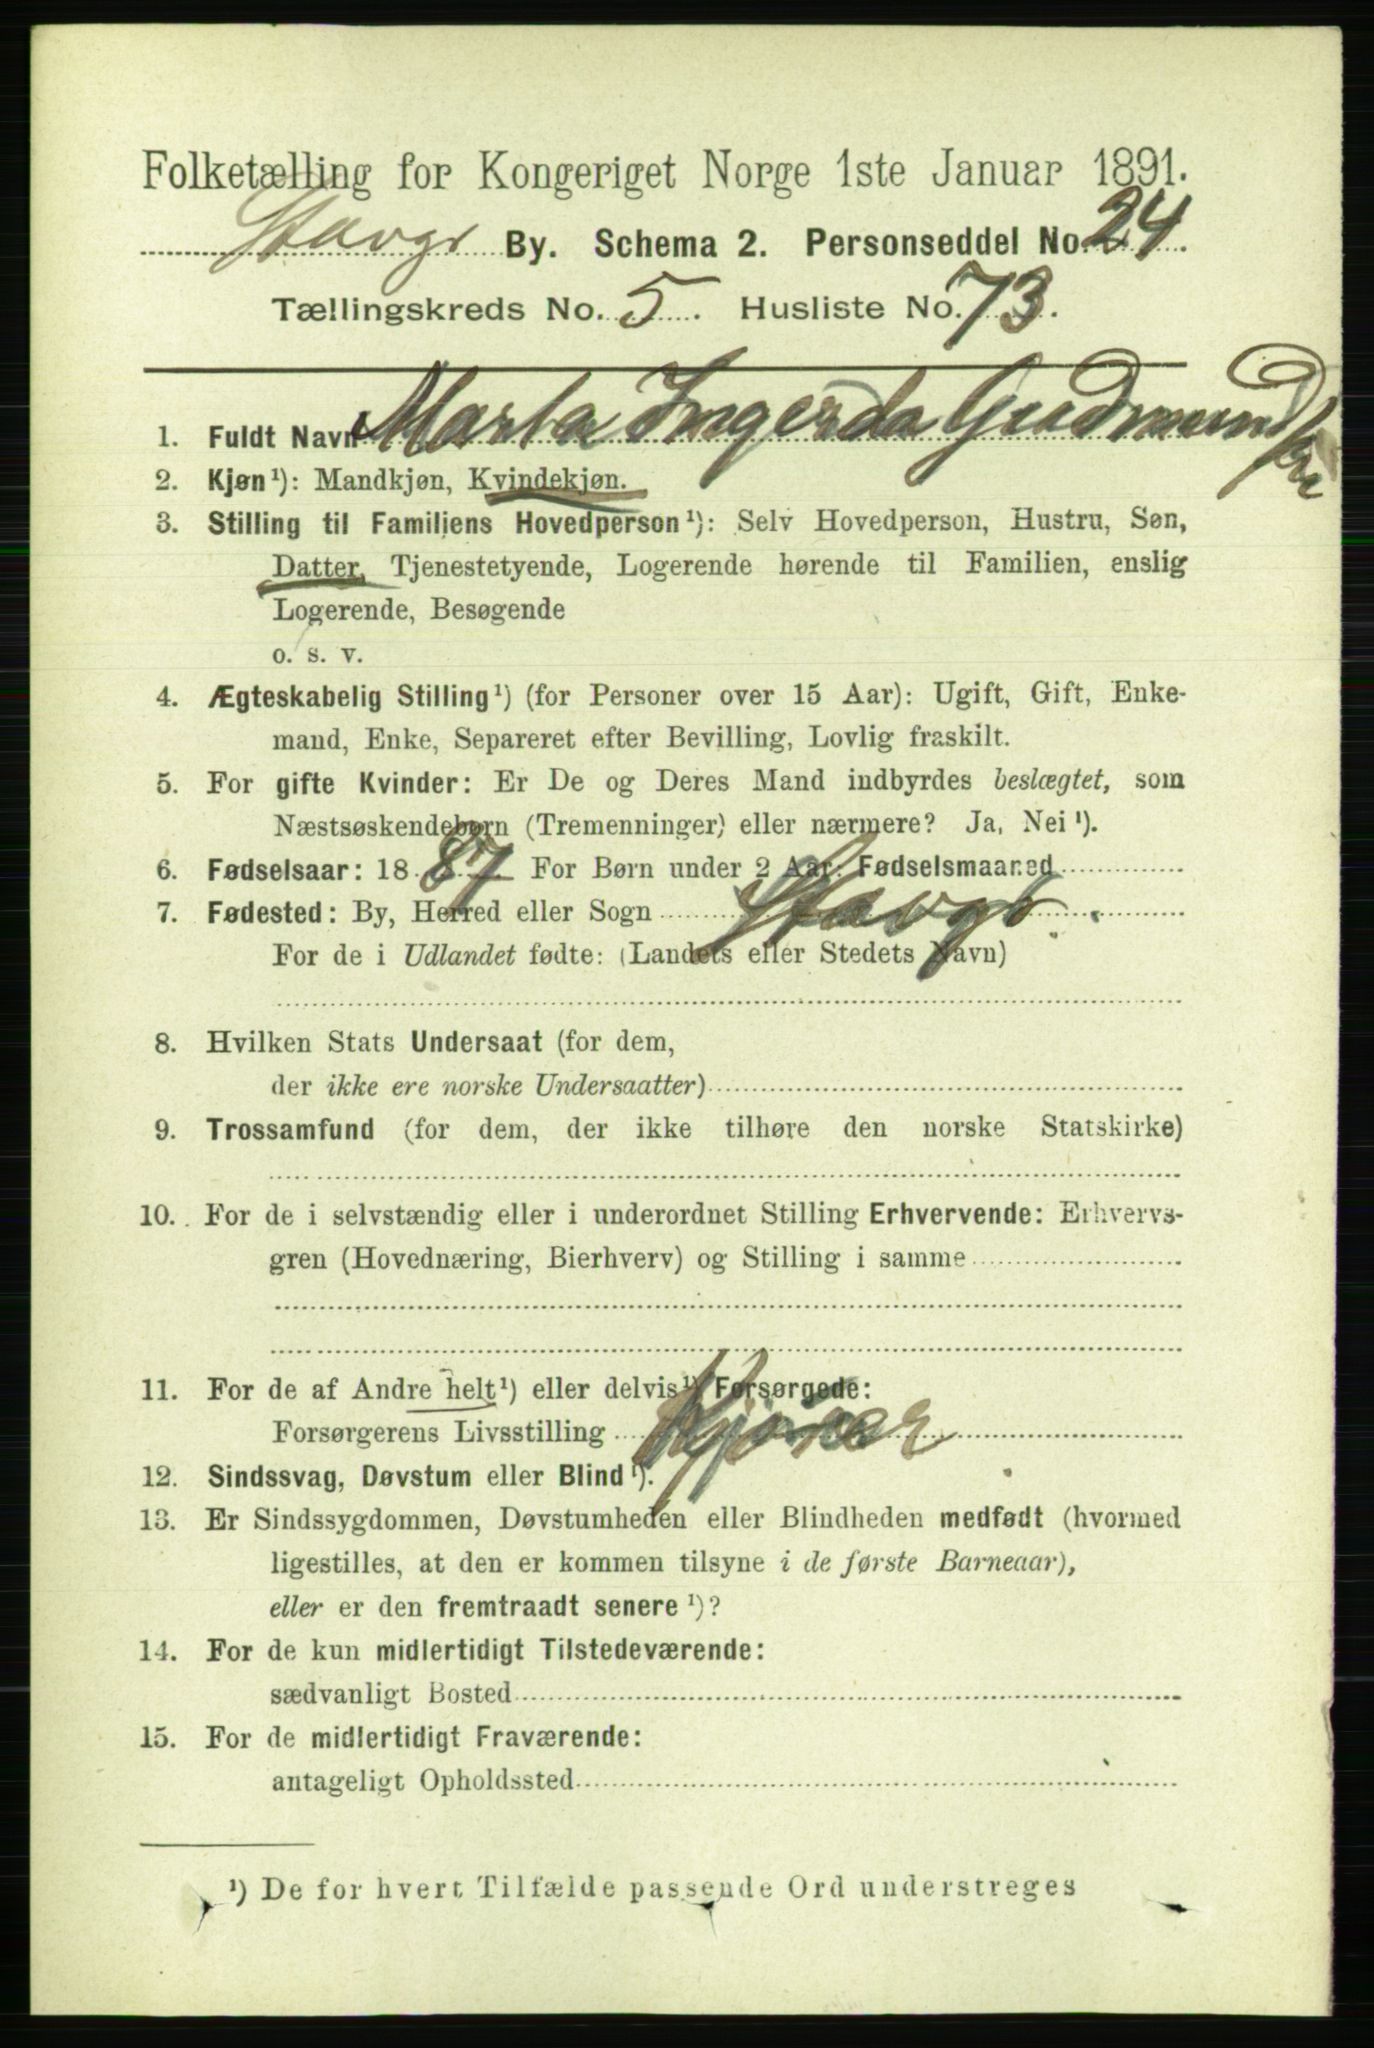 Folketælling for Kongeriget Norge 1ste Januar 1891.
Stavgr By. Schema 2. Personseddel No. 24.
Tællingskreds No. 5. Husliste No. 73.
1. Fuldt Navn Marta Ingerda Gudmund
2. Kjøn¹): Mandkjøn, Kvindekjøn.
3. Stilling til Familiens Hovedperson¹): Selv Hovedperson, Hustru, Søn,
Datter, Tjenestetyende, Logerende hørende til Familien, enslig
Logerende, Besøgende
o. s. v.
4. Ægteskabelig Stilling¹) (for Personer over 15 Aar): Ugift, Gift, Enke-
mand, Enke, Separeret efter Bevilling, Lovlig fraskilt.
5. For gifte Kvinder: Er De og Deres Mand indbyrdes beslægtet, som
Næstsøskendebørn (Tremenninger) eller nærmere? Ja, Nei¹).
6. Fødselsaar: 1887 For Børn under 2 Aar: Fødselsmaaned
7. Fødested: By, Herred eller Sogn Stavgr.
For de i Udlandet fødte: (Landets eller Stedets Navn)
8. Hvilken Stats Undersaat (for dem,
der ikke ere norske Undersaatter)
9. Trossamfund (for dem, der ikke tilhøre den norske Statskirke)
10. For de i selvstændig eller i underordnet Stilling Erhvervende: Erhvervs-
gren (Hovednæring, Bierhverv) og Stilling i samme
11. For de af Andre helt¹) eller delvis¹) Forsørgede:
Forsørgerens Livsstilling Kjører
12. Sindssvag, Døvstum eller Blind¹).
13. Er Sindssygdommen, Døvstumheden eller Blindheden medfødt (hvormed
ligestilles, at den er kommen tilsyne i de første Barneaar),
eller er den fremtraadt senere¹)?
14. For de kun midlertidigt Tilstedeværende:
sædvanligt Bosted
15. For de midlertidigt Fraværende:
antageligt Opholdssted
¹) De for hvert Tilfælde passende Ord understreges